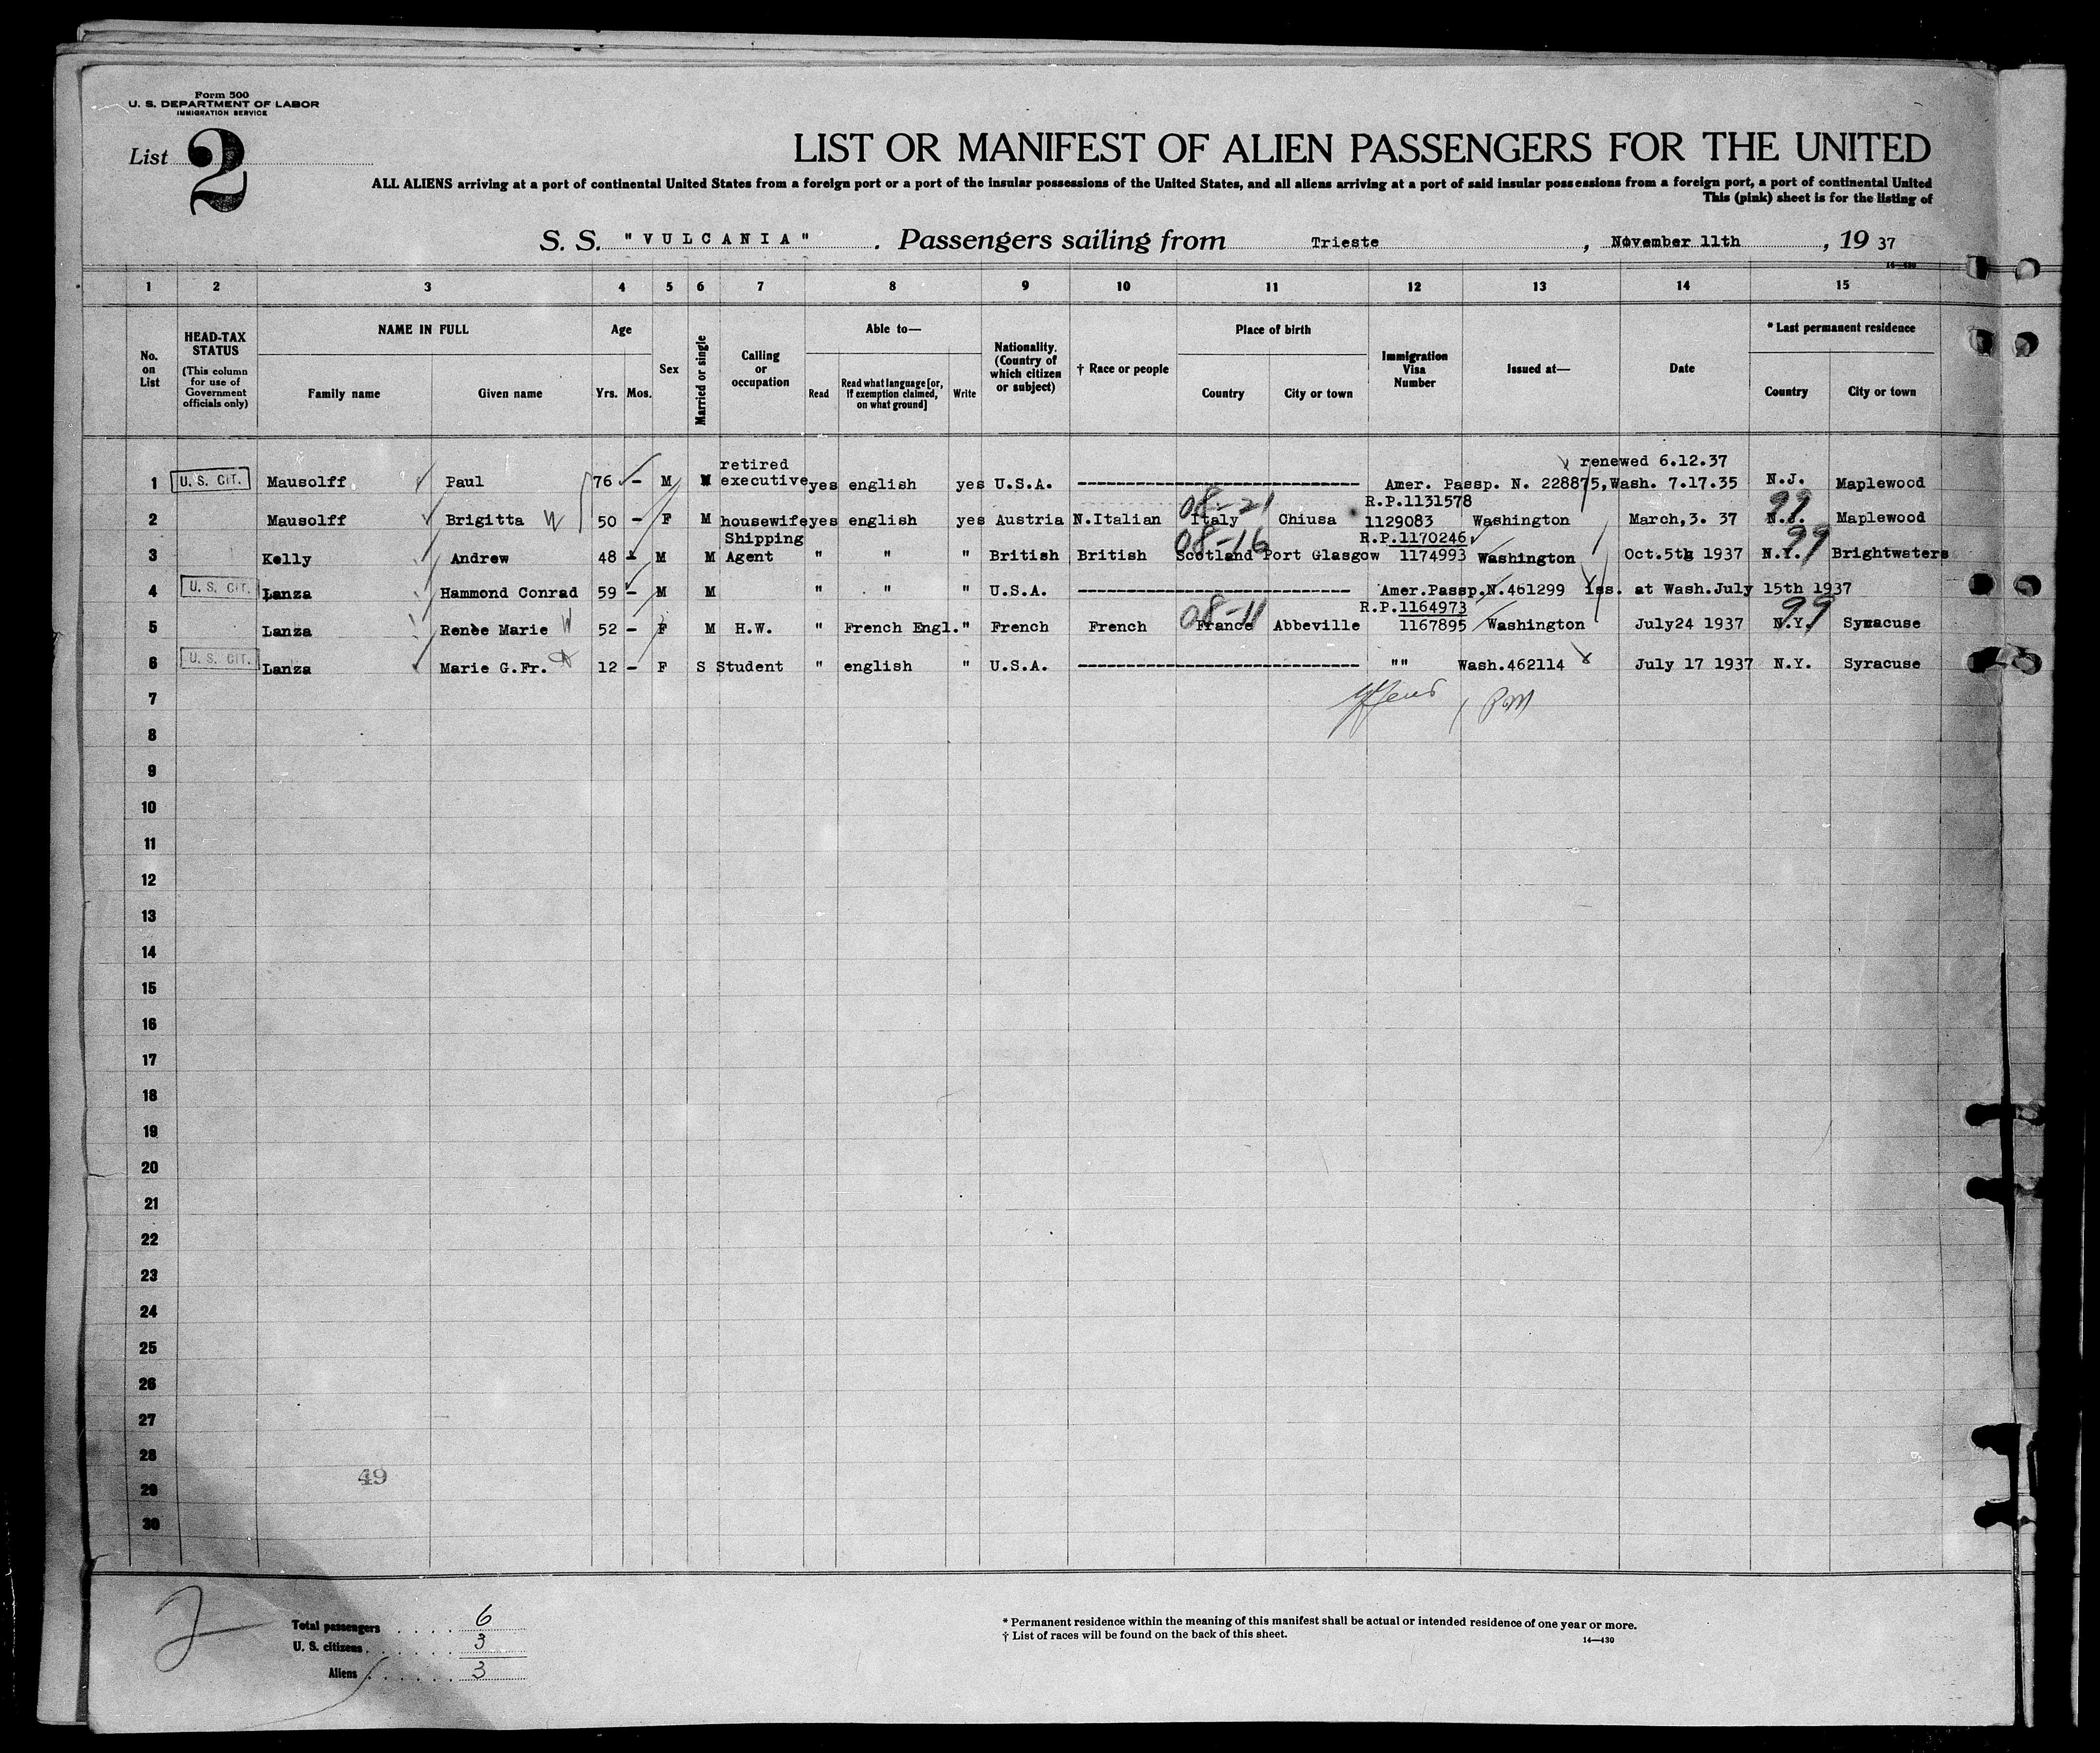 Form 500
U. S. DEPARTMENT OF LABOR
IMMIGRATION SERVICE
List 2
LIST OR MANIFEST OF ALIEN PASSENGERS FOR THE UNITED
ALL ALIENS arriving at a port of continental United States from a foreign port or a port of the insular possessions of the United States, and all aliens arriving at a port of said insular possessions from a foreign port, a port of continental United
This (pink) sheet is for the listing of
S. S. "VULCANIA" . Passengers sailing from Trieste , November 11th , 19 37
14—430
1 2 3 4 5 6 7 8 9 10 11 12 13 14 15
No. on List
HEAD-TAX STATUS
(This column for use of Government officials only)
NAME IN FULL
Family name Given name
Age
Yrs. Mos.
Sex
Married or single
Calling or occupation
Able to—
Read
Read what language [or, if exemption claimed, on what ground]
Write
Nationality. (Country of which citizen or subject)
† Race or people
Place of birth
Country City or town
Immigration Visa Number
Issued at—
Date
* Last permanent residence
Country City or town
retired renewed 6.12.37
1 U. S. CIT. Mausolff Paul 76 - M executive yes english yes U.S.A. Amer. Passp. N. 228875, Wash. 7.17.35 N.J. Maplewood
08-21 R.P.1131578 99
2 Mausolff Brigitta W 50 - F M housewife yes english yes Austria N.Italian Italy Chiusa 1129083 Washington March,3. 37 N.J. Maplewood
Shipping 08-16 R.P.1170246 99
3 Kelly Andrew 48 M M Agent " " " British British Scotland Port Glasgow 1174993 Washington Oct.5th 1937 N.Y. Brightwaters
4 U. S. CIT. Lanza Hammond Conrad 59 - M M " " " U.S.A. Amer.Passp.N.461299 iss. at Wash.July 15th 1937
08-11 R.P.1164973 99
5 Lanza Renèe Marie W 52 - F M H.W. " French Engl. " French French France Abbeville 1167895 Washington July24 1937 N.Y. Syracuse
6 U. S. CIT. Lanza Marie G.Fr. 12 - F S Student " english " U.S.A. "" Wash.462114 July 17 1937 N.Y. Syracuse
7
8
9
10
11
12
13
14
15
16
17
18
19
20
21
22
23
24
25
26
27
28
49
29
30
2
Total passengers 6
U. S. citizens 3
Aliens 3
* Permanent residence within the meaning of this manifest shall be actual or intended residence of one year or more.
† List of races will be found on the back of this sheet.
14—430